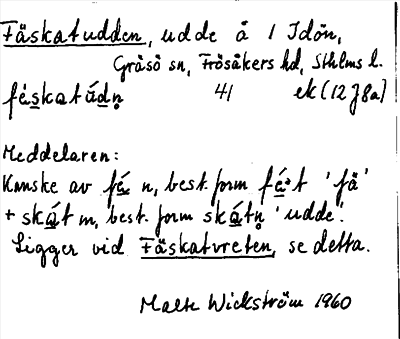 Fäskatudden, udde å 1 Idön,
Gräsö sn, Frösåkers hd, Sthlms l.
fέskatúdn̥ 41 ek (12 J 8a)
Meddelaren:
Kanske av fέ n, best. form fέ·t 'fä'
+ skát m, best. form skátn̥ 'udde'.
Ligger vid Fäskatvreten, se detta.
Malte Wickström 1960